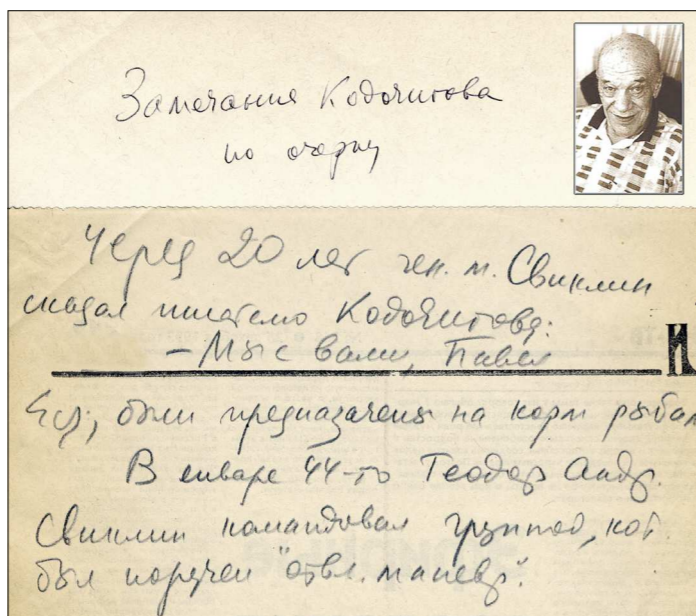 Замечания Кодочигова
по очерку
Через 20 лет ген. м. Свиклин
сказал писателю Кодочигову:
– Мы с вами, Павел
И
были предназначены на корм рыбам
В январе 44-го Теодор Андр.
Свиклин командовал группой, кот.
был поручен "отвл. маневр".